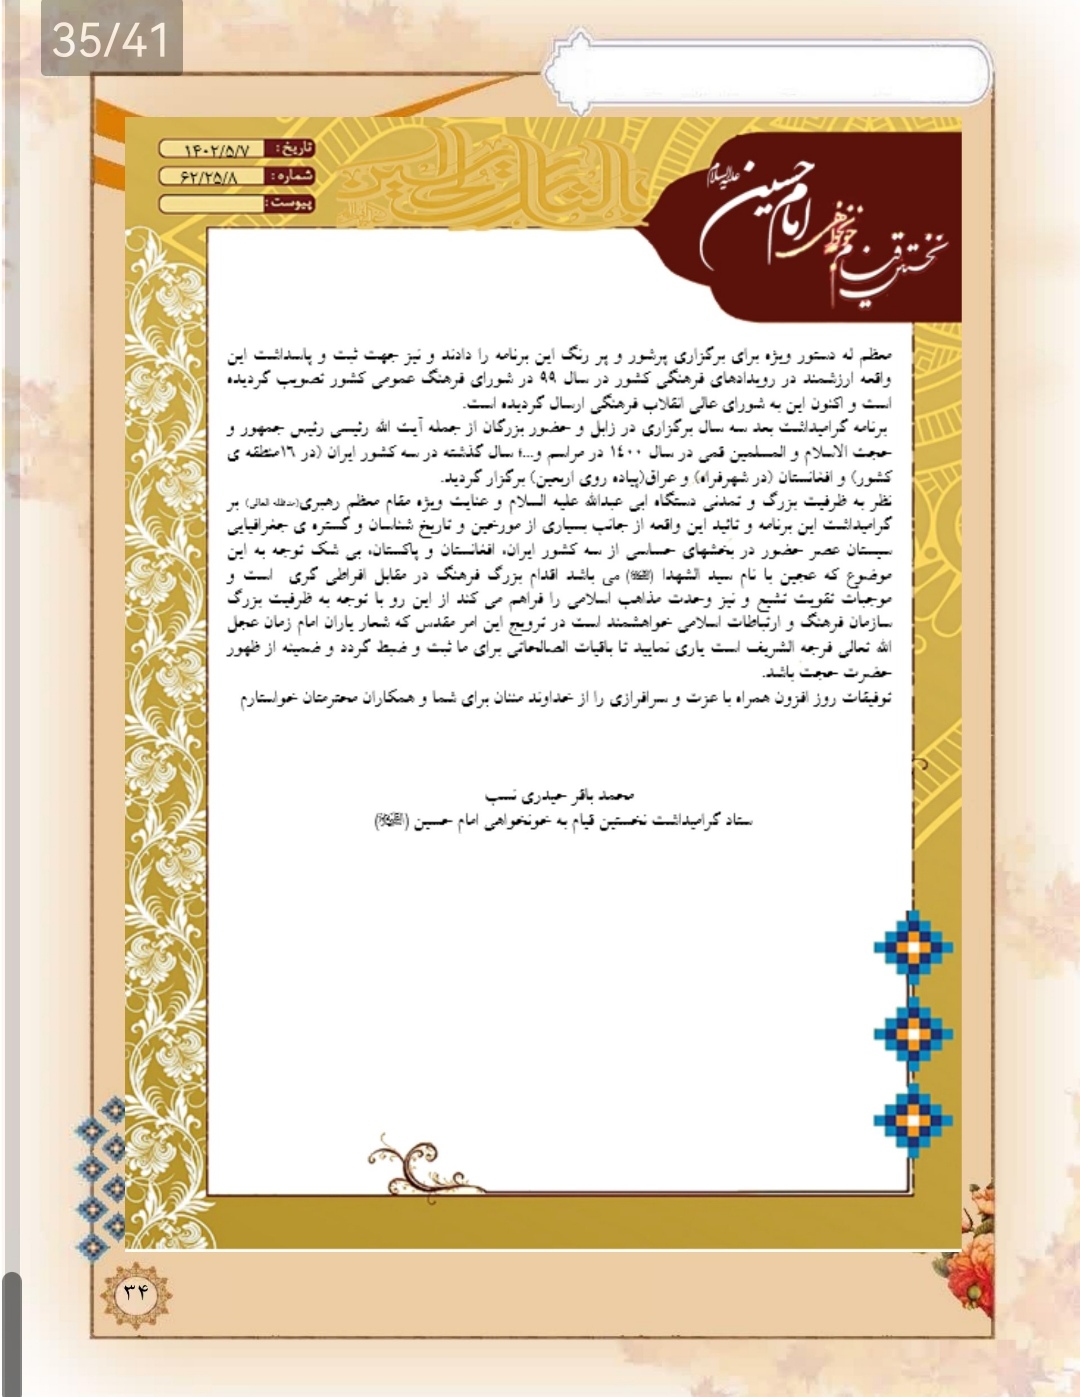 35/41
تاریخ: ۱۴۰۲/۵/۷
شماره: ۶۲/۲۵/۸
پیوست:
نخستین قیام خونخواهی امام حسین علیه‌السلام
معظم له دستور ویژه برای برگزاری پرشور و پر رنگ این برنامه را دادند و نیز جهت ثبت و پاسداشت این
واقعه ارزشمند در رویدادهای فرهنگی کشور در سال ۹۹ در شورای فرهنگ عمومی کشور تصویب گردیده
است و اکنون این به شورای عالی انقلاب فرهنگی ارسال گردیده است.
برنامه گرامیداشت بعد سه سال برگزاری در زابل و حضور بزرگان از جمله آیت الله رئیسی رئیس جمهور و
حجت الاسلام و المسلمین قمی در سال ۱۴۰۰ در مراسم و...؛ سال گذشته در سه کشور ایران (در ۱۶منطقه ی
کشور) و افغانستان (در شهرفراه) و عراق(پیاده روی اربعین) برگزار گردید.
نظر به ظرفیت بزرگ و تمدنی دستگاه ابی عبدالله علیه السلام و عنایت ویژه مقام معظم رهبری(مدظله العالی) بر
گرامیداشت این برنامه و تائید این واقعه از جانب بسیاری از مورخین و تاریخ شناسان و گستره ی جغرافیایی
سیستان عصر حضور در بخشهای حساسی از سه کشور ایران، افغانستان و پاکستان، بی شک توجه به این
موضوع که عجین با نام سید الشهدا () می باشد اقدام بزرگ فرهنگ در مقابل افراطی گری است و
موجبات تقویت تشیع و نیز وحدت مذاهب اسلامی را فراهم می کند از این رو با توجه به ظرفیت بزرگ
سازمان فرهنگ و ارتباطات اسلامی خواهشمند است در ترویج این امر مقدس که شعار یاران امام زمان عجل
الله تعالی فرجه الشریف است یاری نمایید تا باقیات الصالحاتی برای ما ثبت و ضبط گردد و ضمینه از ظهور
حضرت حجت باشد.
توفیقات روز افزون همراه با عزت و سرافرازی را از خداوند منان برای شما و همکاران محترمتان خواستارم
محمد باقر حیدری نسب
ستاد گرامیداشت نخستین قیام به خونخواهی امام حسین ()
۳۴